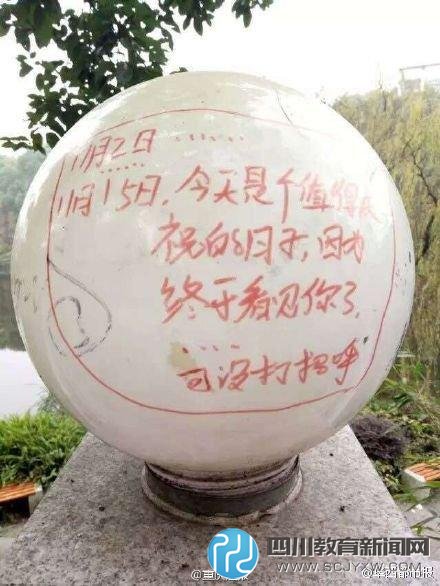 11月2日 ......
11月15日，今天是个值得庆
祝的日子，因为
终于看见你了，
.....
可没打招呼
四川教育新闻网
WWW.SCJYXW.COM